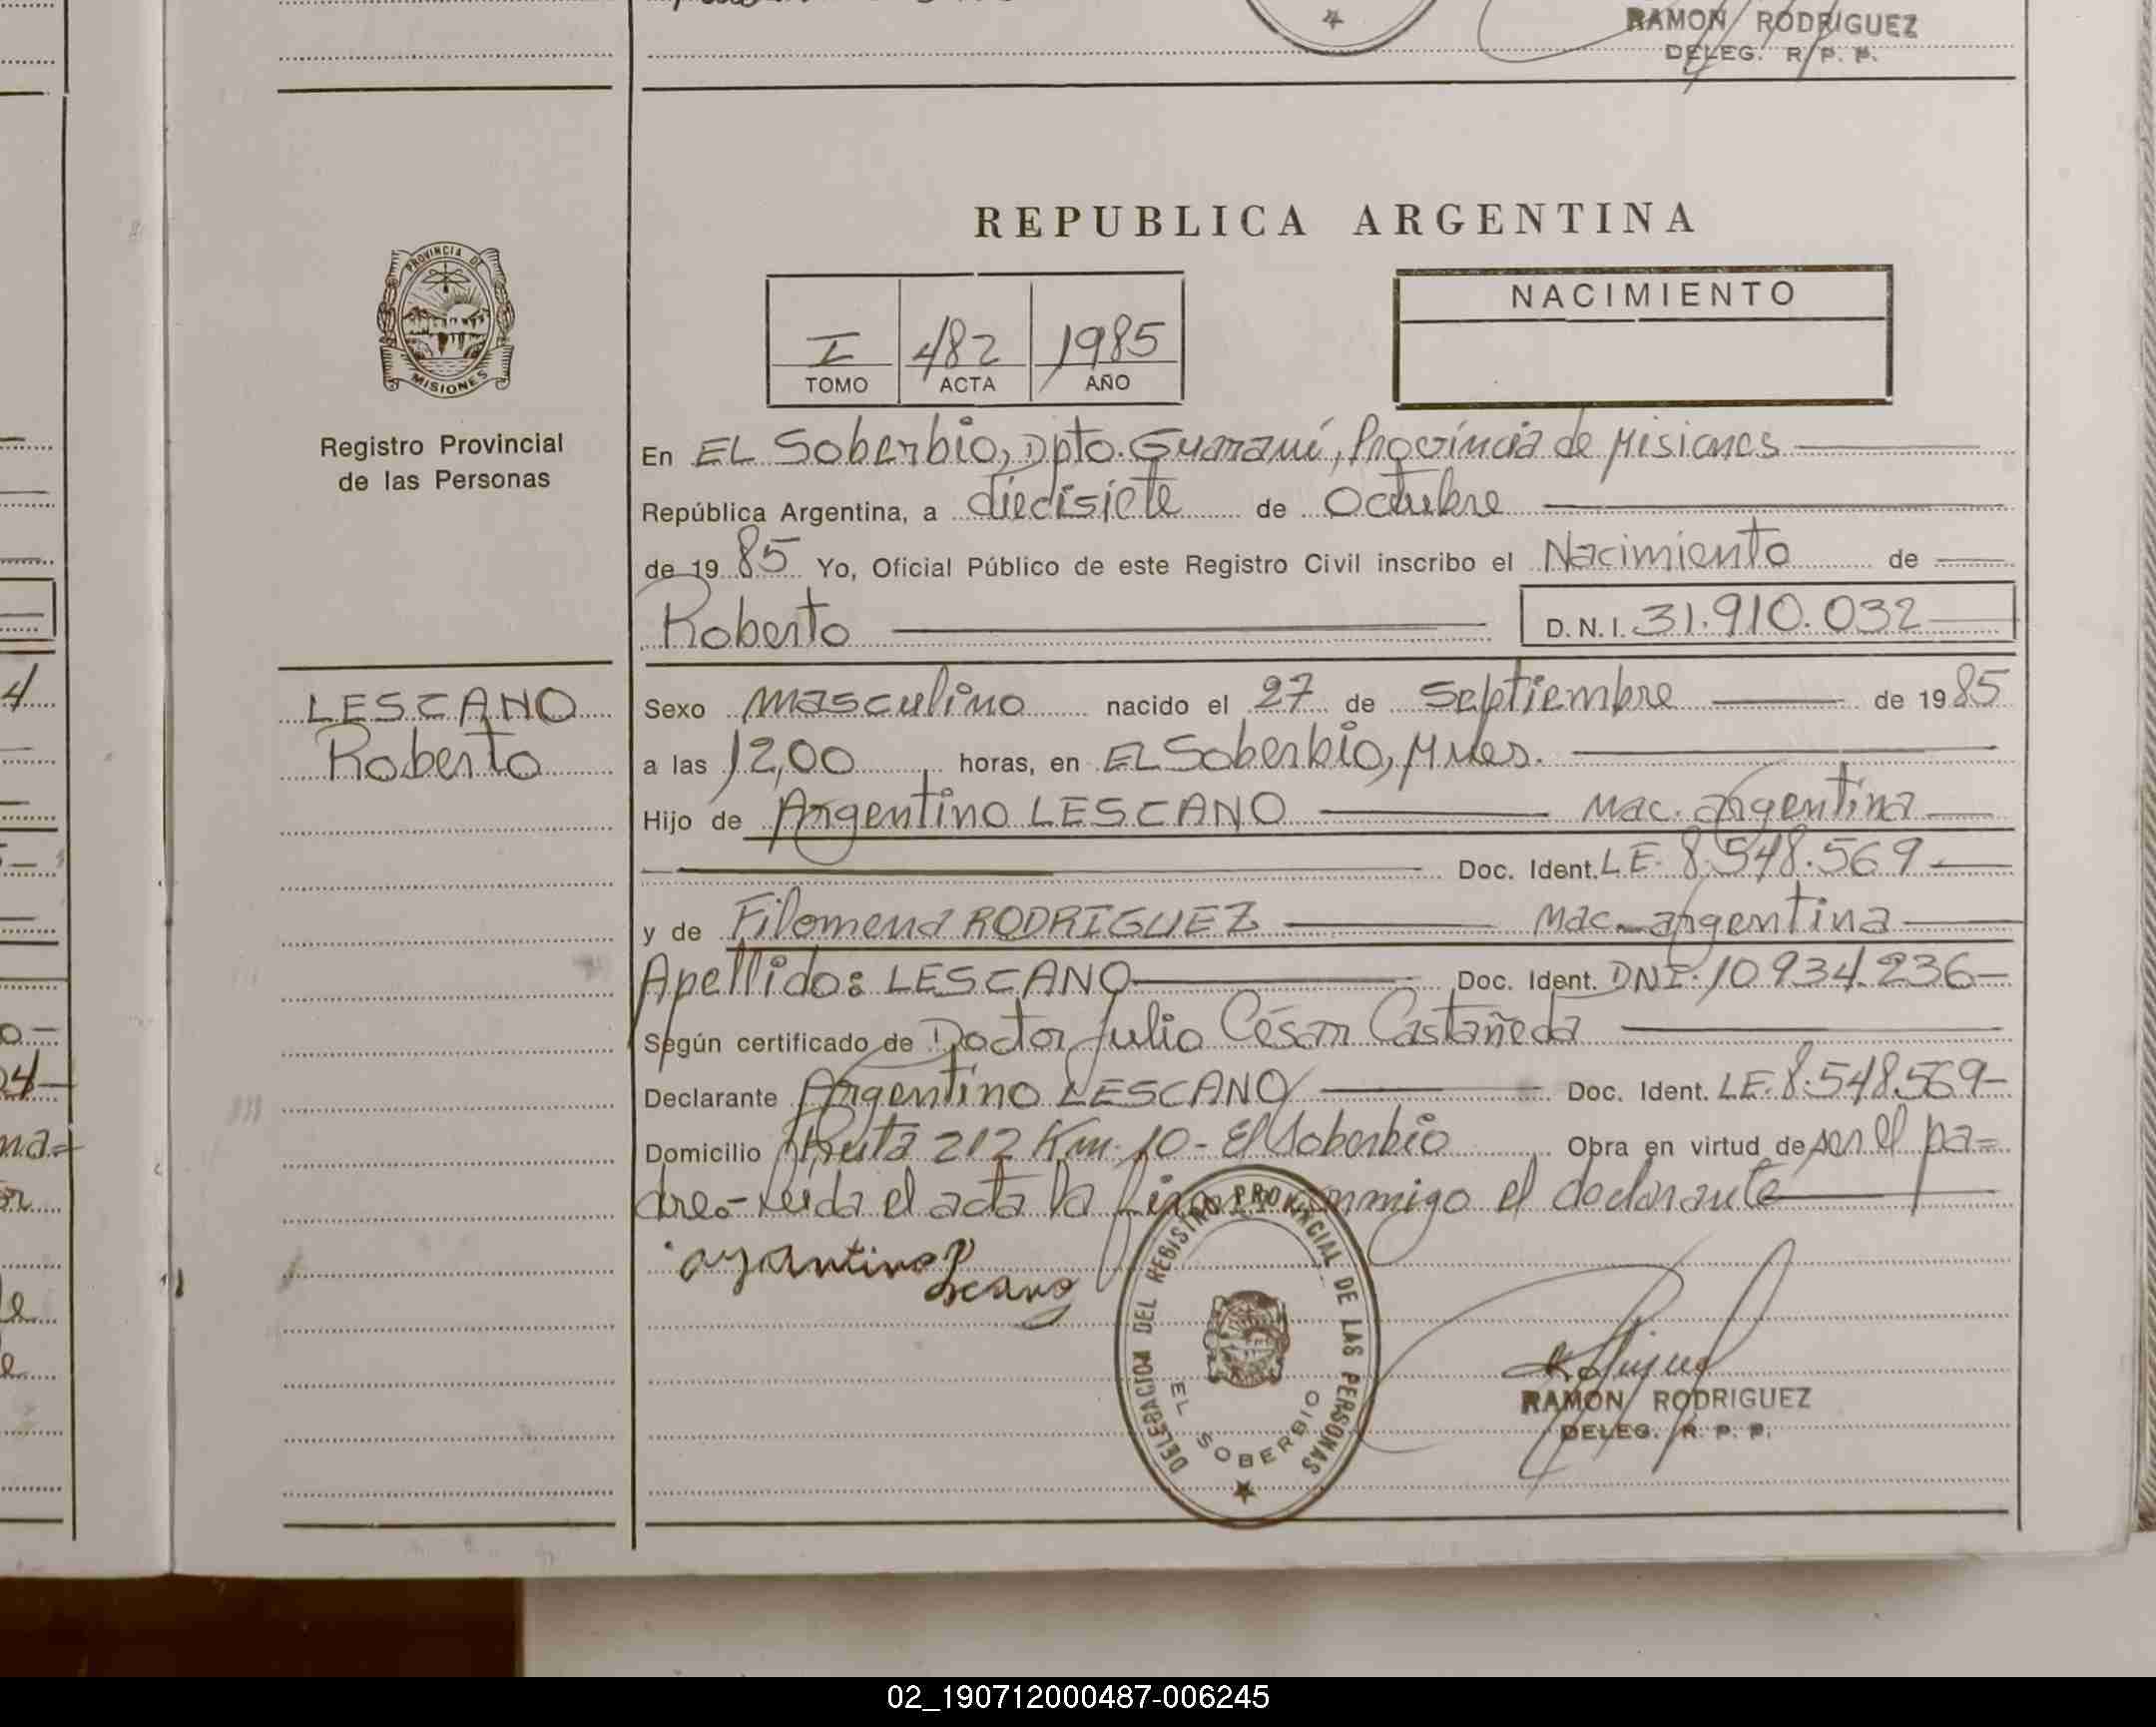 RAMON RODRIGUEZ
DELEG. R. P. P.
REPUBLICA ARGENTINA
PROVINCIA DE
MISIONES
Registro Provincial
de las Personas
I 482 1985
TOMO ACTA AÑO
NACIMIENTO
En EL Soberbio, Dpto. Guaraní, Provincia de Misiones
República Argentina, a diecisiete de Octubre
de 19 85 Yo, Oficial Público de este Registro Civil inscribo el Nacimiento de
Roberto D.N.I. 31.910.032
LESCANO
Roberto
Sexo masculino nacido el 27 de Septiembre de 19 85
a las 12,00 horas, en EL Soberbio, Mnes.
Hijo de Argentino LESCANO nac. argentina
Doc. Ident. LE. 8.548.569
y de Filomena RODRIGUEZ nac. argentina
Apellido: LESCANO Doc. Ident. DNI. 10.934.236
Según certificado de Doctor Julio César Castañeda
Declarante Argentino LESCANO Doc. Ident. LE. 8.548.569
Domicilio Ruta 212 Km. 10 - El Soberbio Obra en virtud de ser el pa=
dre.- Leida el acta la firma conmigo el declarante
DELEGACION DEL REGISTRO PROVINCIAL DE LAS PERSONAS
EL SOBERBIO
RAMON RODRIGUEZ
DELEG. R. P. P.
02_190712000487-006245